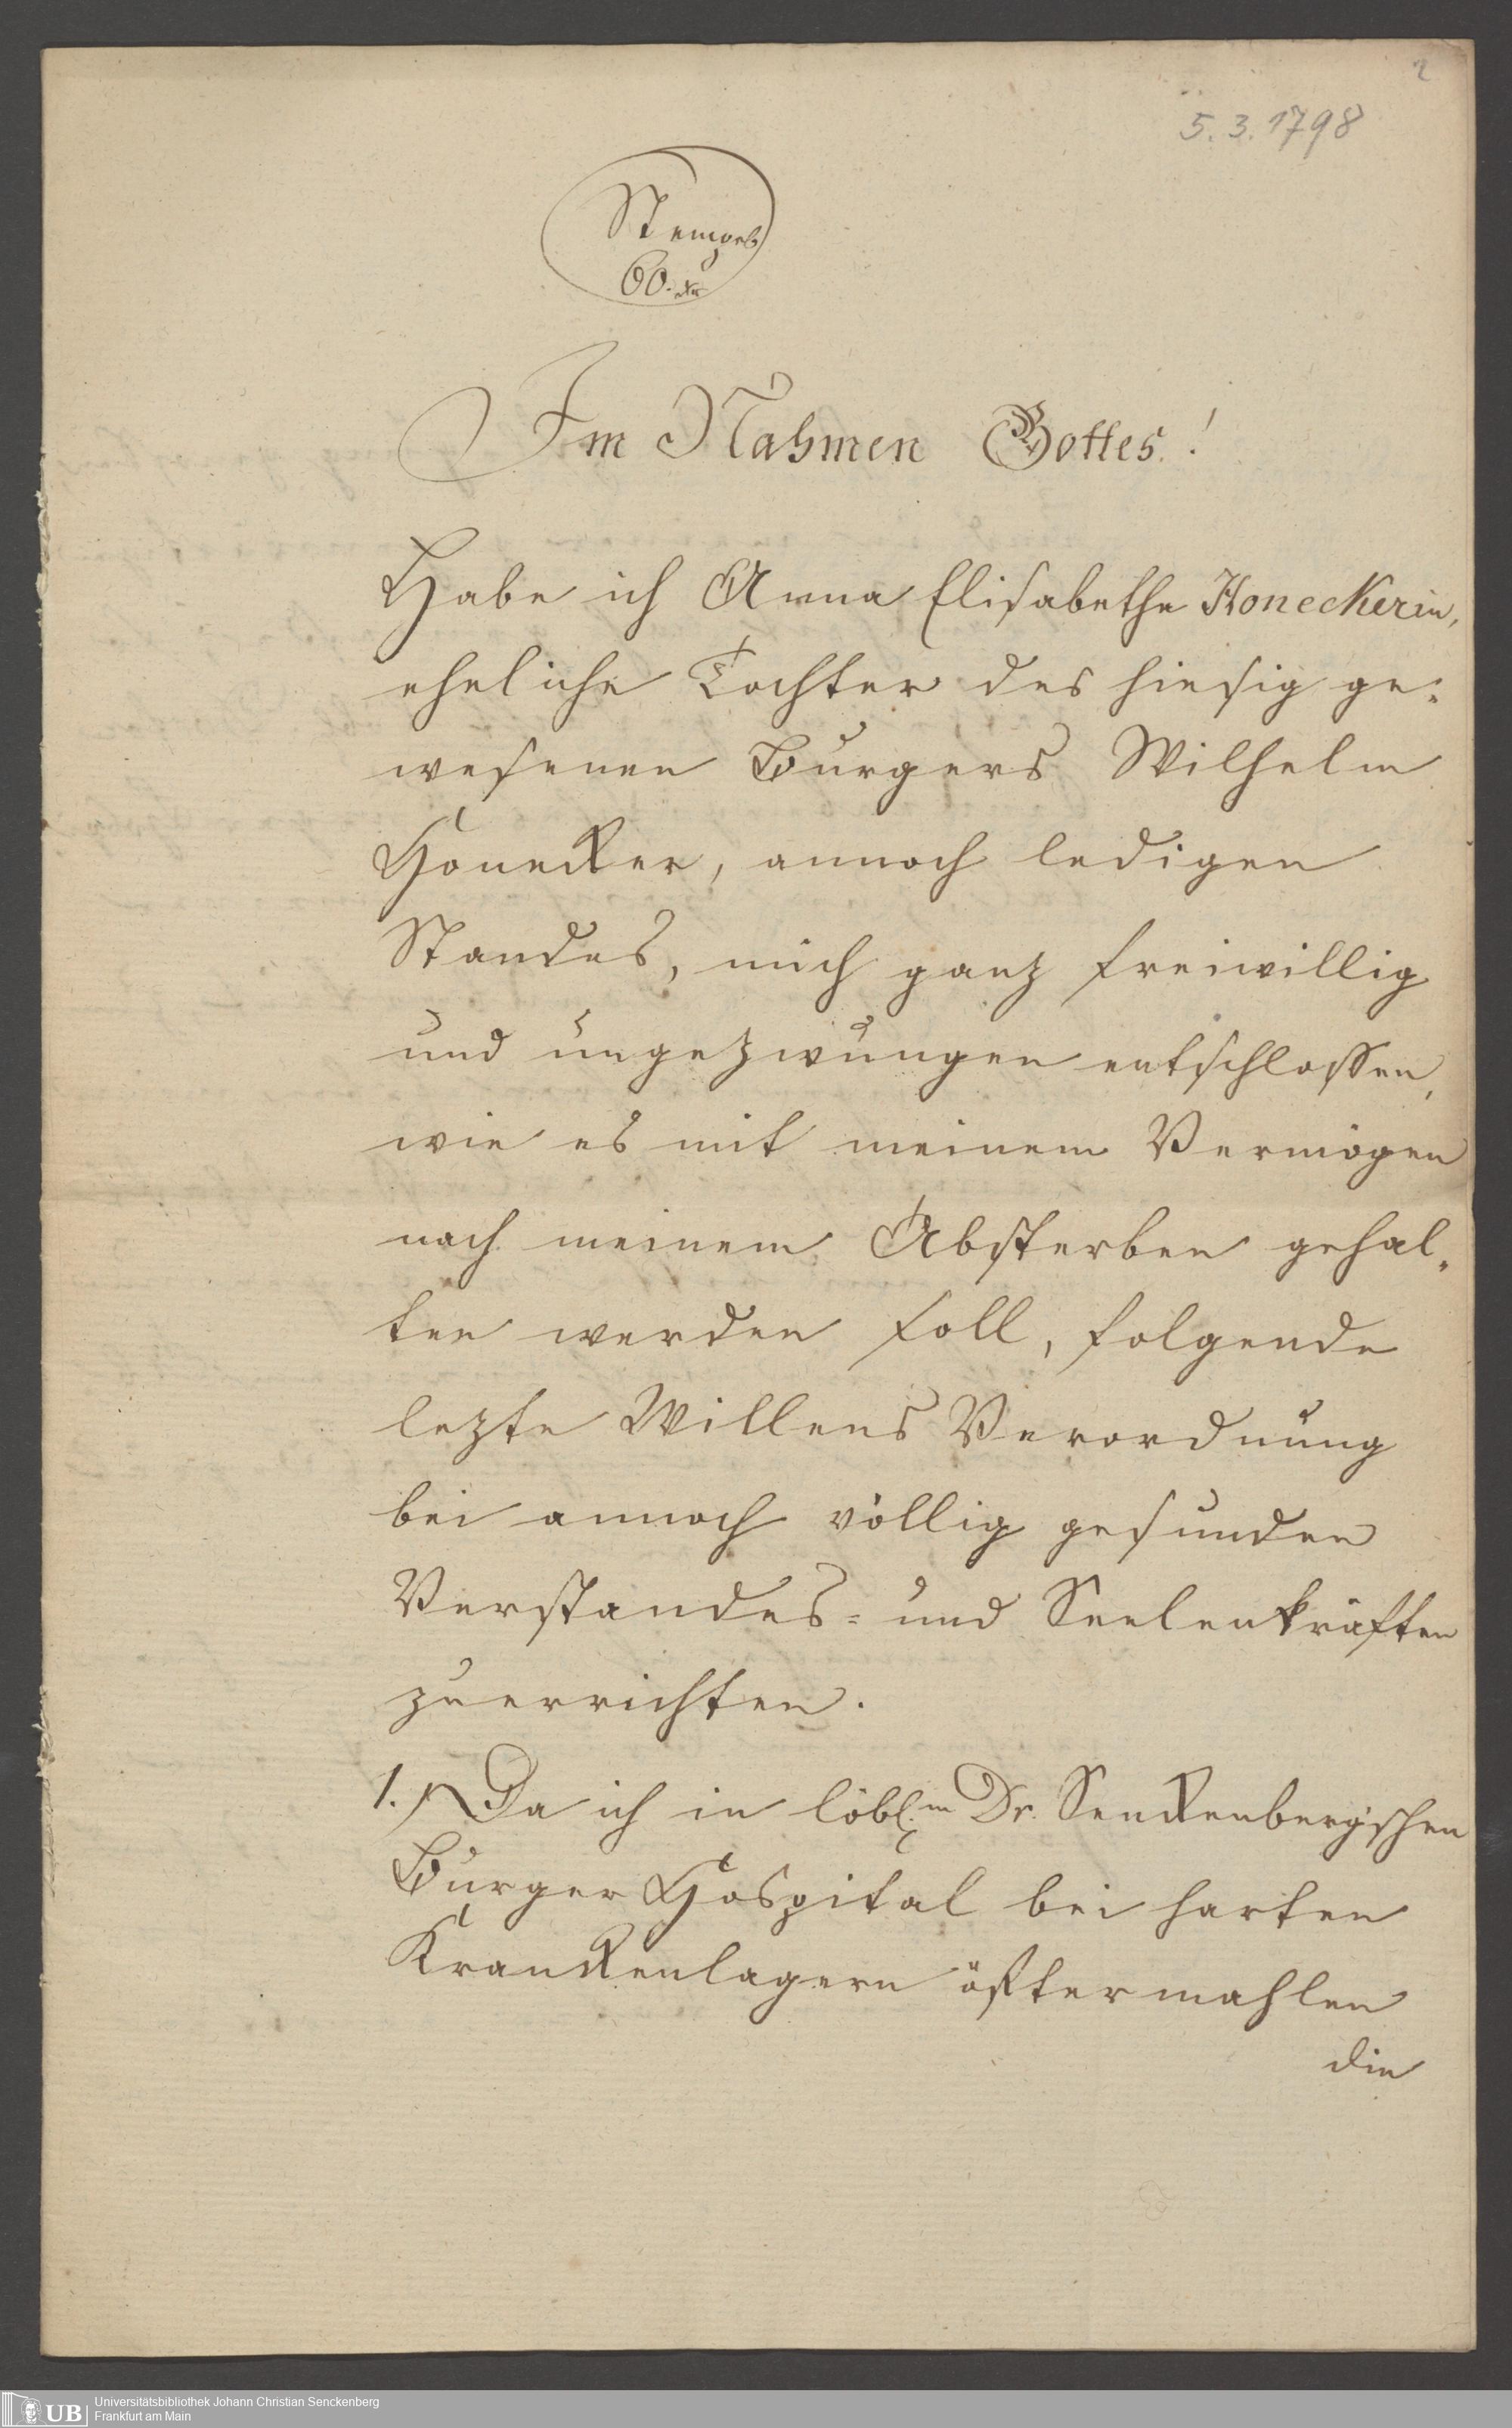 2
5. 3. 1798
Stempel
60. xr
Im Nahmen Gottes!
Habe ich Anna Elisabetha Honeckerin,
eheliche Tochter des hiesig ge-
wesenen Burgers Wilhelm
Honecker, annoch ledigen
Standes, mich ganz freiwillig
und ungezwungen entschlossen,
wie es mit meinem Vermögen
nach meinem Absterben gehal-
ten werden soll, folgende
lezte Willens Verordnung
bei annoch völlig gesunden
Verstandes- und Seelenkräften
zuerrichten.
1.) Da ich in löbl.m Dr. Senckenberg'schen
Burger Hospital bei harten
Kranckenlagern öftermahlen
die
UB
Universitätsbibliothek Johann Christian Senckenberg
Frankfurt am Main